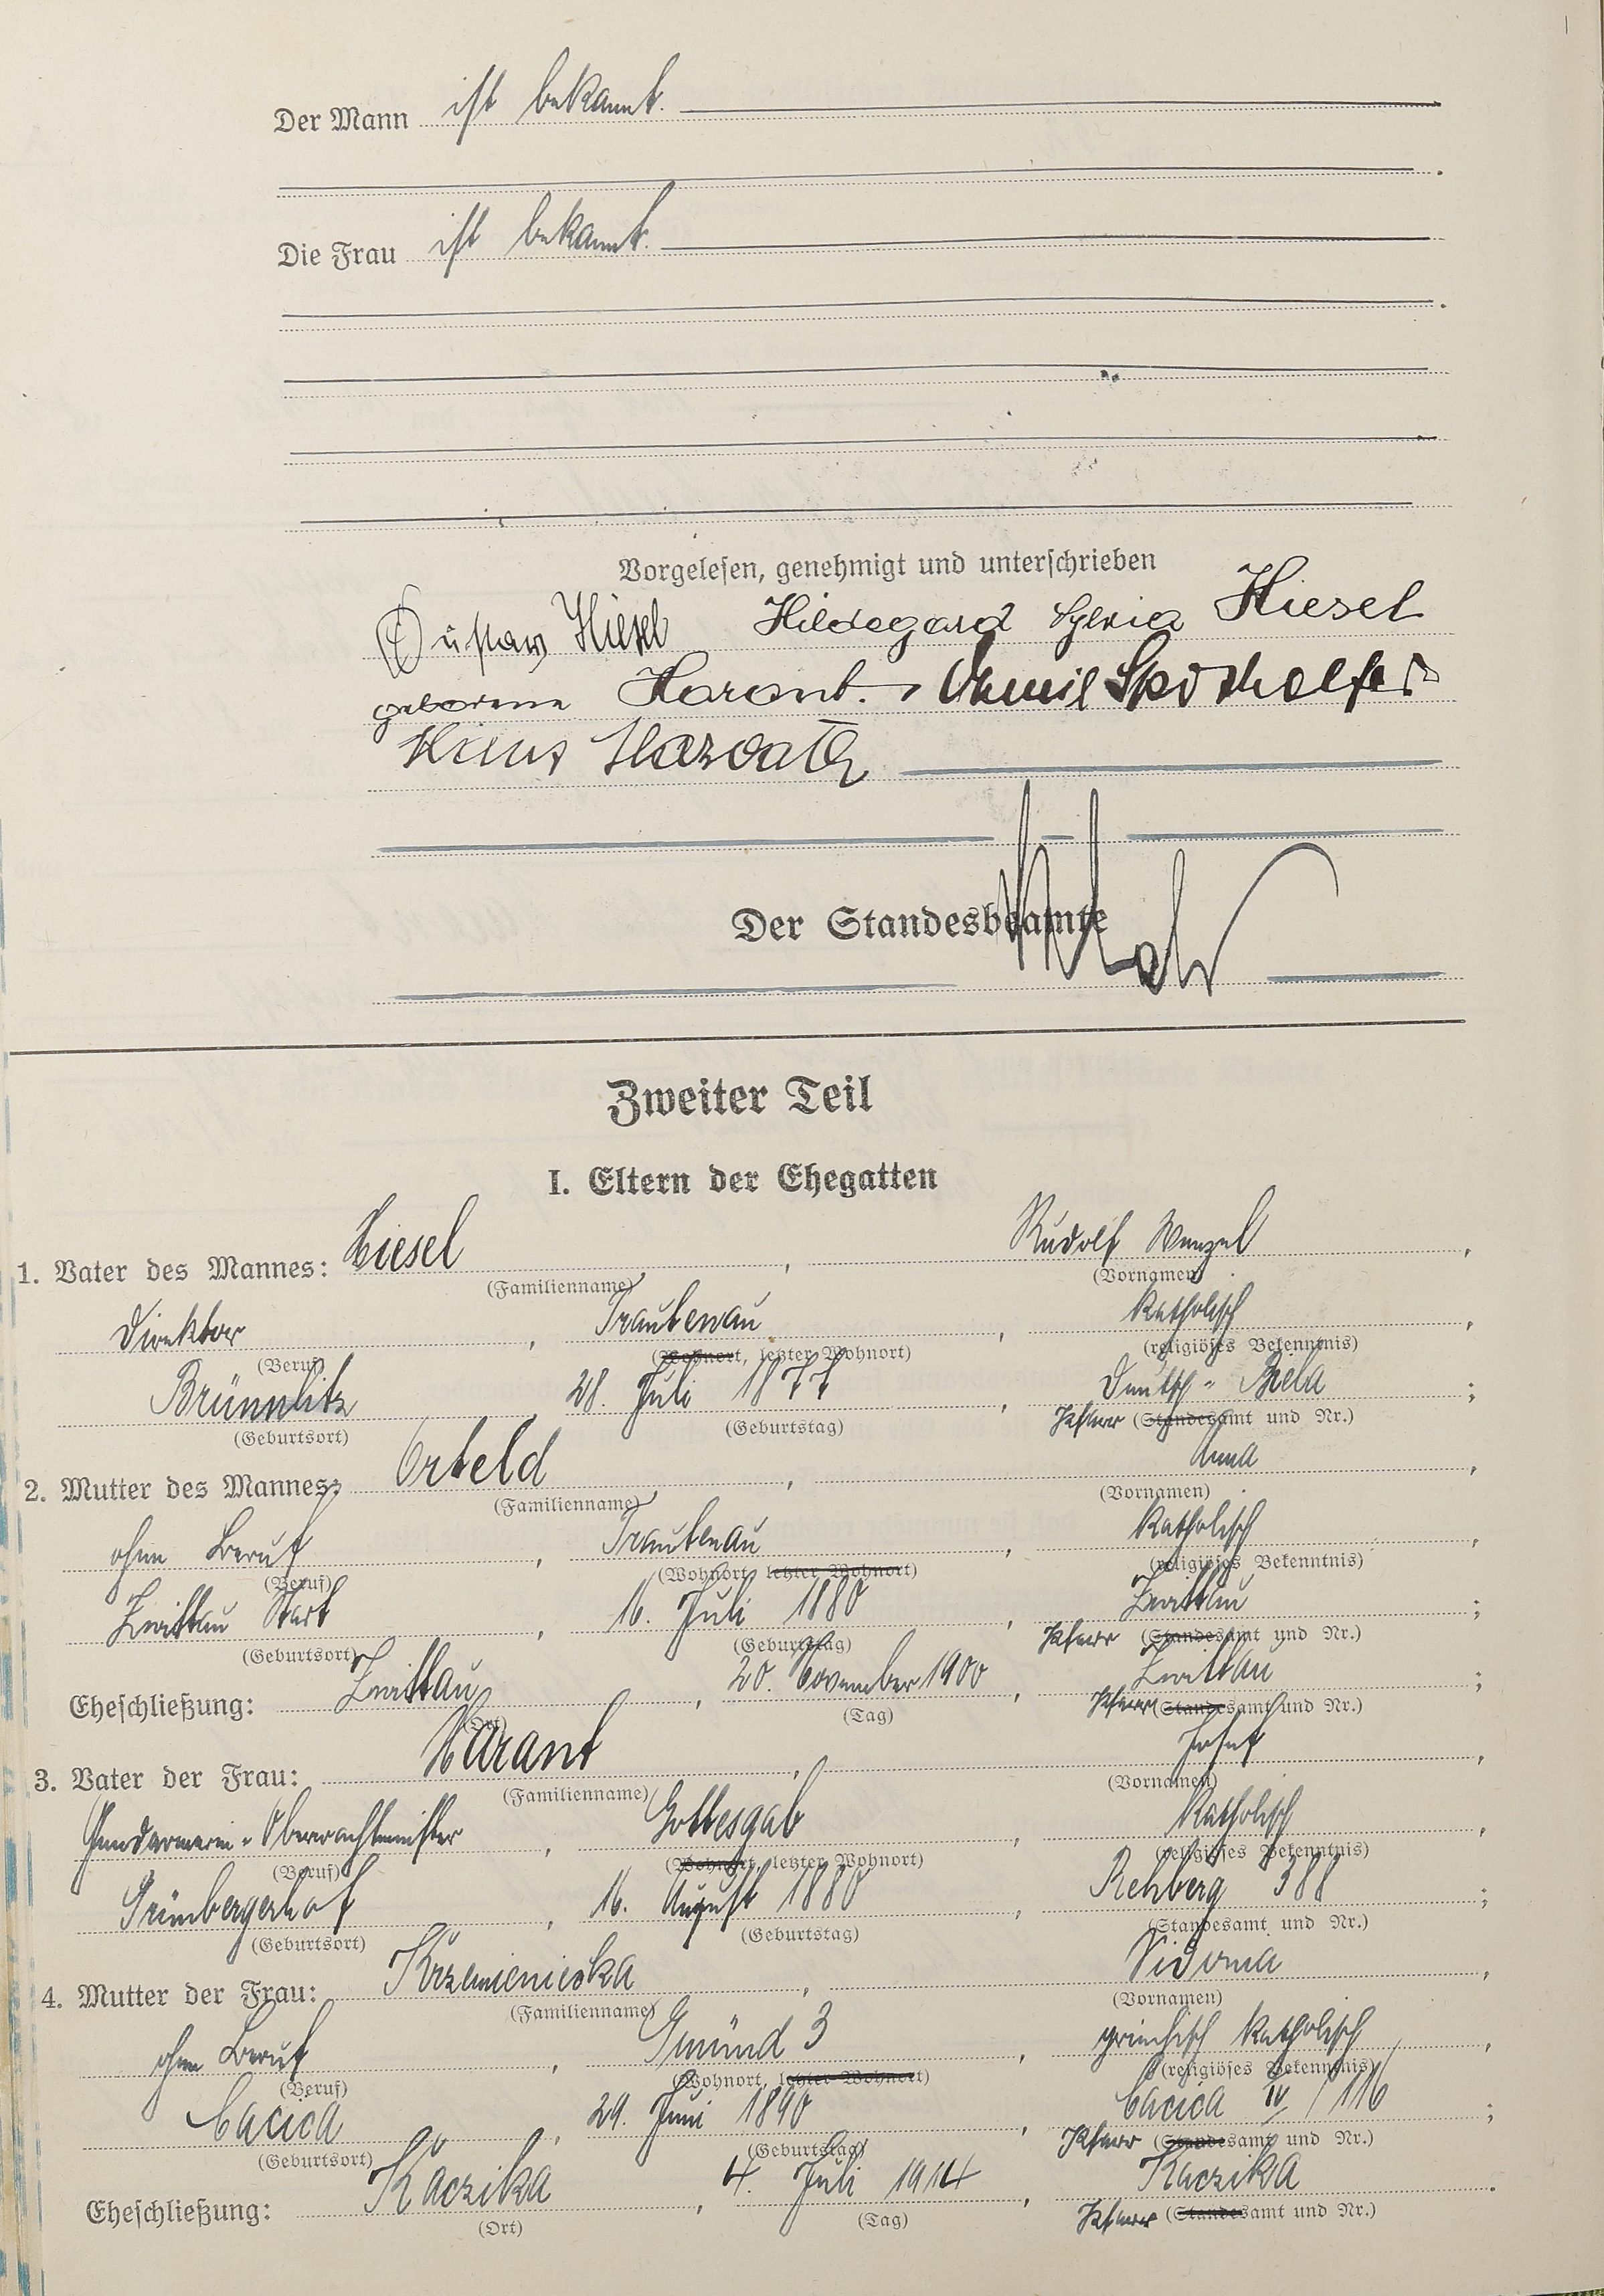 Der Mann ist bekannt.
Die Frau ist bekannt.
Vorgelesen, genehmigt und unterschrieben
Gustav Hiesel Hildegard Sylvia Hiesel
geborene Harant.
Der Standesbeamte
Zweiter Teil
I. Eltern der Ehegatten
1. Vater des Mannes: Hiesel, Rudolf Wenzel,
(Familienname) (Vornamen)
Direktor, Trautenau, Katholisch,
(Beruf) (Wohnort, letzter Wohnort) (religiöses Bekenntnis)
Brünnlitz, 28. Juli 1877, Deutsch-Biela;
(Geburtsort) (Geburtstag) Pfarr (Standesamt und Nr.)
2. Mutter des Mannes: Orteld, Anna,
(Familienname) (Vornamen)
ohne Beruf, Trautenau, Katholisch,
(Beruf) (Wohnort, letzter Wohnort) (religiöses Bekenntnis)
Zwittau Stadt, 16. Juli 1880, Zwittau;
(Geburtsort) (Geburtstag) Pfarr (Standesamt und Nr.)
Eheschließung: Zwittau, 20. November 1900, Zwittau;
(Ort) (Tag) Pfarr (Standesamt und Nr.)
3. Vater der Frau: Harant, Josef,
(Familienname) (Vornamen)
Gendarmerie-Oberwachtmeister, Gottesgab, Katholisch,
(Beruf) (Wohnort, letzter Wohnort) (religiöses Bekenntnis)
Grünbergerhof, 16. August 1880, Rehberg 388;
(Geburtsort) (Geburtstag) (Standesamt und Nr.)
4. Mutter der Frau: Krzemienieska, Sidonia,
(Familienname) (Vornamen)
ohne Beruf, Gmünd 3, griechisch katholisch,
(Beruf) (Wohnort, letzter Wohnort) (religiöses Bekenntnis)
Cacica, 29. Juni 1890, Cacica IV/116;
(Geburtsort) (Geburtstag) Pfarr (Standesamt und Nr.)
Eheschließung: Kaczika, 4. Juli 1914, Kaczika.
(Ort) (Tag) Pfarr (Standesamt und Nr.)